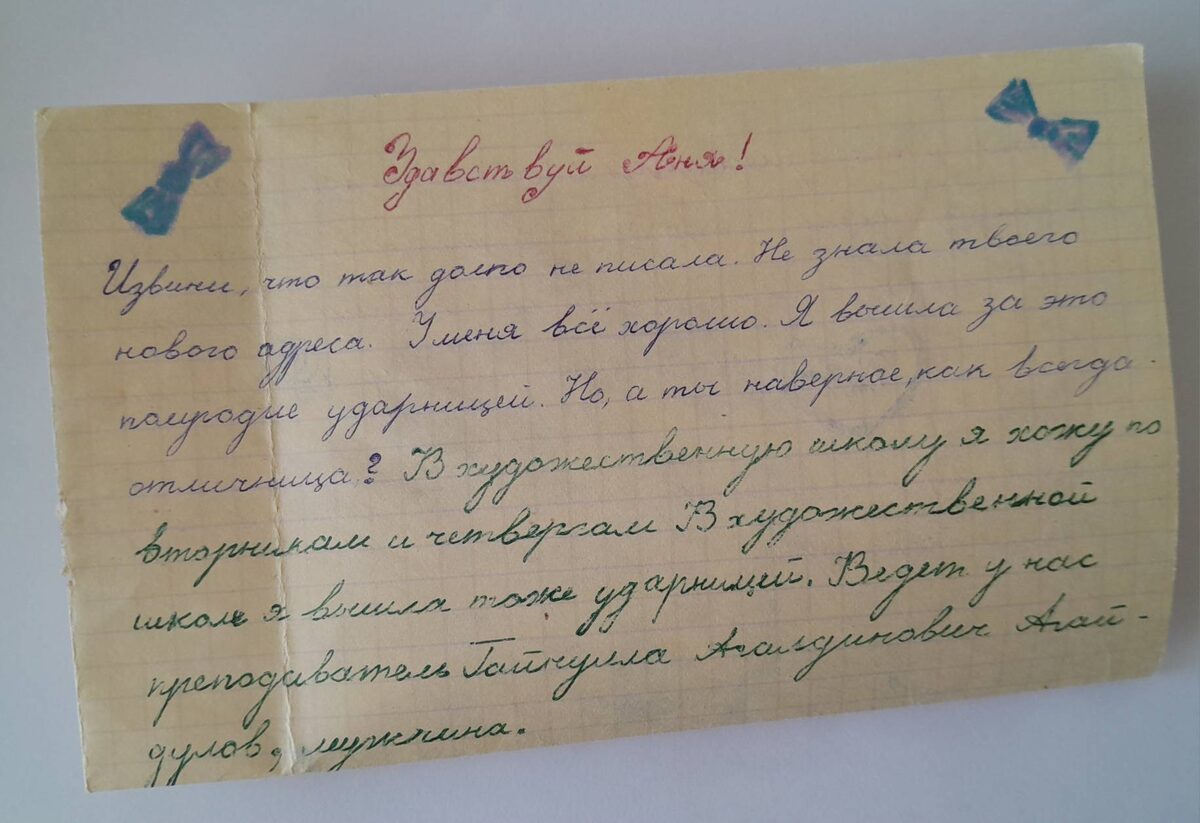 Здавствуй Аня!
Извини, что так долго не писала. Не знала твоего
нового адреса. У меня всё хорошо. Я вышла за это
полугодие ударницей. Но, а ты наверное, как всегда
отличница? В художественную школу я хожу по
вторникам и четвергам В художественной
школе я вышла тоже ударницей. Ведет у нас
преподаватель Агай-
дулов, мужчина.